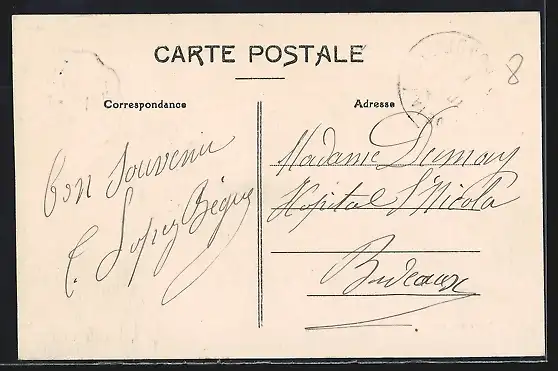 CARTE POSTALE
8
Correspondance
Adresse
Bon Souvenir
E. Lopez Bégue
Madame Dumay
Hopital St Nicola
Bordeaux